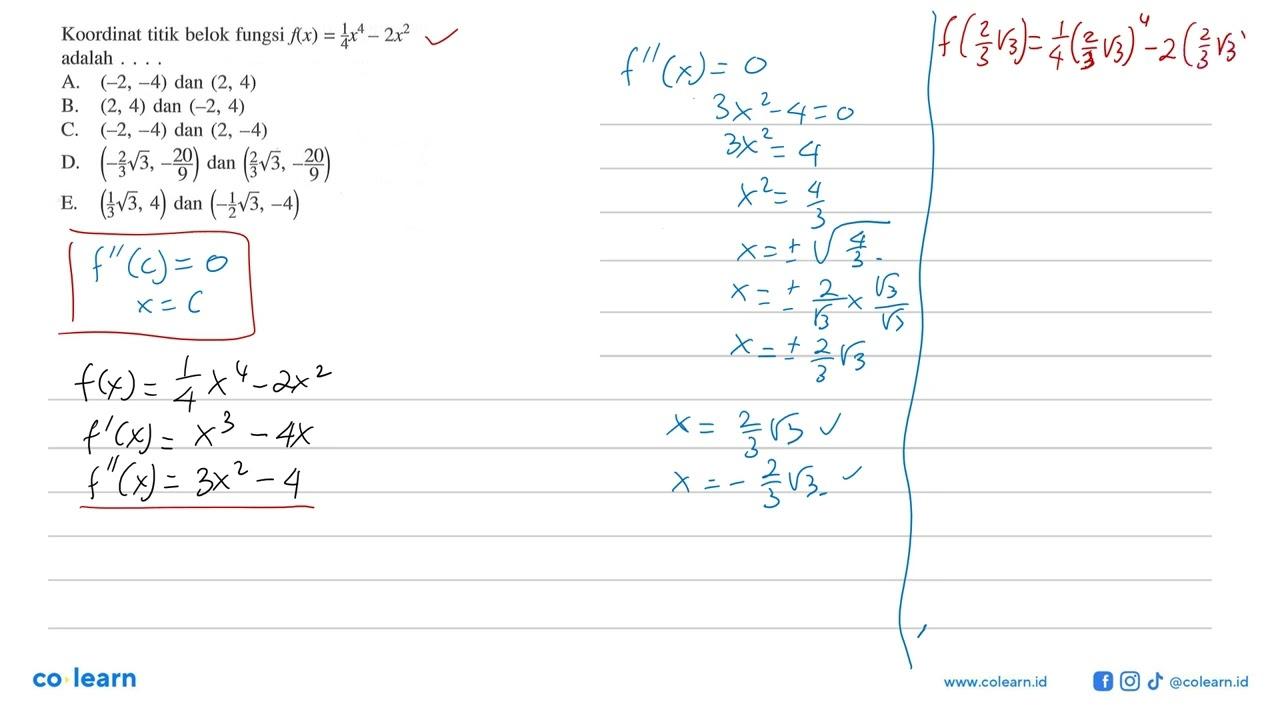 Koordinat titik belok fungsi f(x) = 1/4 x⁴ – 2x²
adalah . . . .
A. (–2, –4) dan (2, 4)
B. (2, 4) dan (–2, 4)
C. (–2, –4) dan (2, –4)
D. (–2/3 √3, –20/9) dan (2/3 √3, –20/9)
E. (1/3 √3, 4) dan (–1/2 √3, –4)
f''(c) = 0
x = c
f(x) = 1/4 x⁴ – 2x²
f'(x) = x³ – 4x
f''(x) = 3x² – 4
f''(x) = 0
3x² – 4 = 0
3x² = 4
x² = 4/3
x = ± √(4/3)
x = ± 2/√3 × √3/√3
x = ± 2/3 √3
x = 2/3 √3 ✓
x = – 2/3 √3 ✓
f(2/3 √3) = 1/4 (2/3 √3)⁴ – 2 (2/3 √3
co·learn
www.colearn.id
@colearn.id